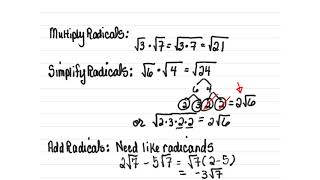 Multiply Radicals:
√3 · √7 = √3·7 = √21
Simplify Radicals: √6 · √4 = √24
6 4
2 3 2 2 = 2√6
or √2·3·2·2 = 2√6
Add Radicals: Need like radicands
2√7 - 5√7 = √7(2-5)
= -3√7